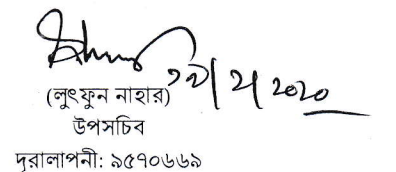 ২০২০
(লুৎফুন নাহার)
উপসচিব
দূরালাপনী: ৯৫৭০৬৬৯